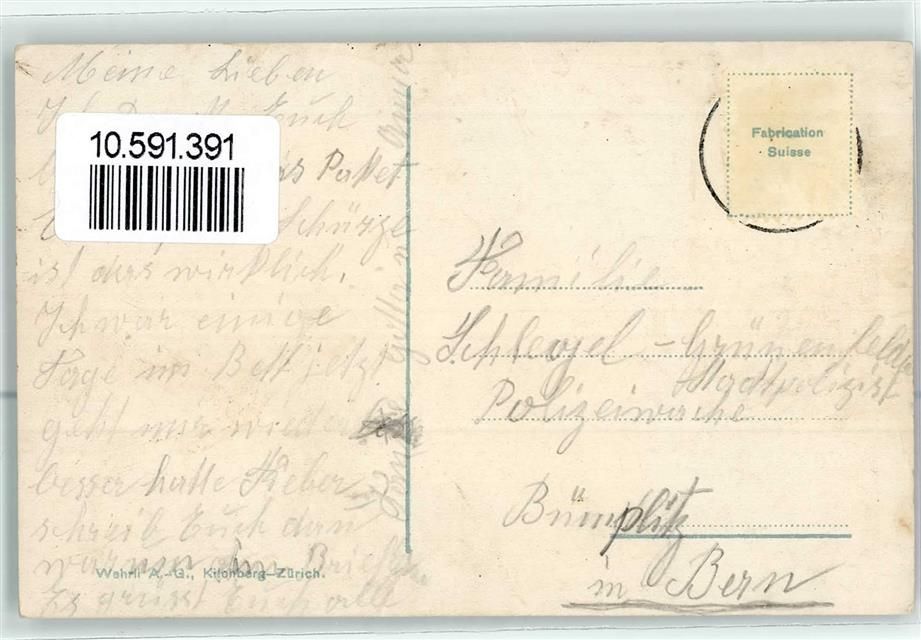 Meine Lieben
Ich Euch
10.591.391
Paket
Schürze
ist das wirklich.
Ich war einige
Tage im Bett jetzt
geht mir wieder
besser hatte Fieber
schreib Euch dan
warum Brief
Es grüsst Euch alle
Wehrli A.-G., Kilchberg-Zürich.
Fabrication
Suisse
Familie
Schlegel - Grünenfelder
Stadtpolizist
Polizeiwache
Bümplitz
in Bern